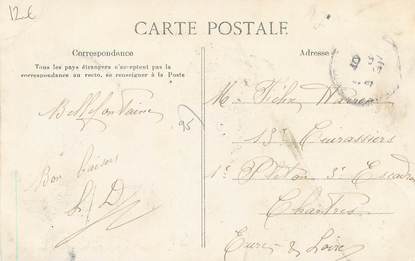 12€
CARTE POSTALE
Correspondance
Tous les pays étrangers n'acceptent pas la
correspondance au recto, se renseigner à la Poste
Adresse
Bellefontaine
95
Bon baisers
M. Félix
13e Cuirassiers
1e Ploton 3e Escadron
Chartres
Eure & Loire